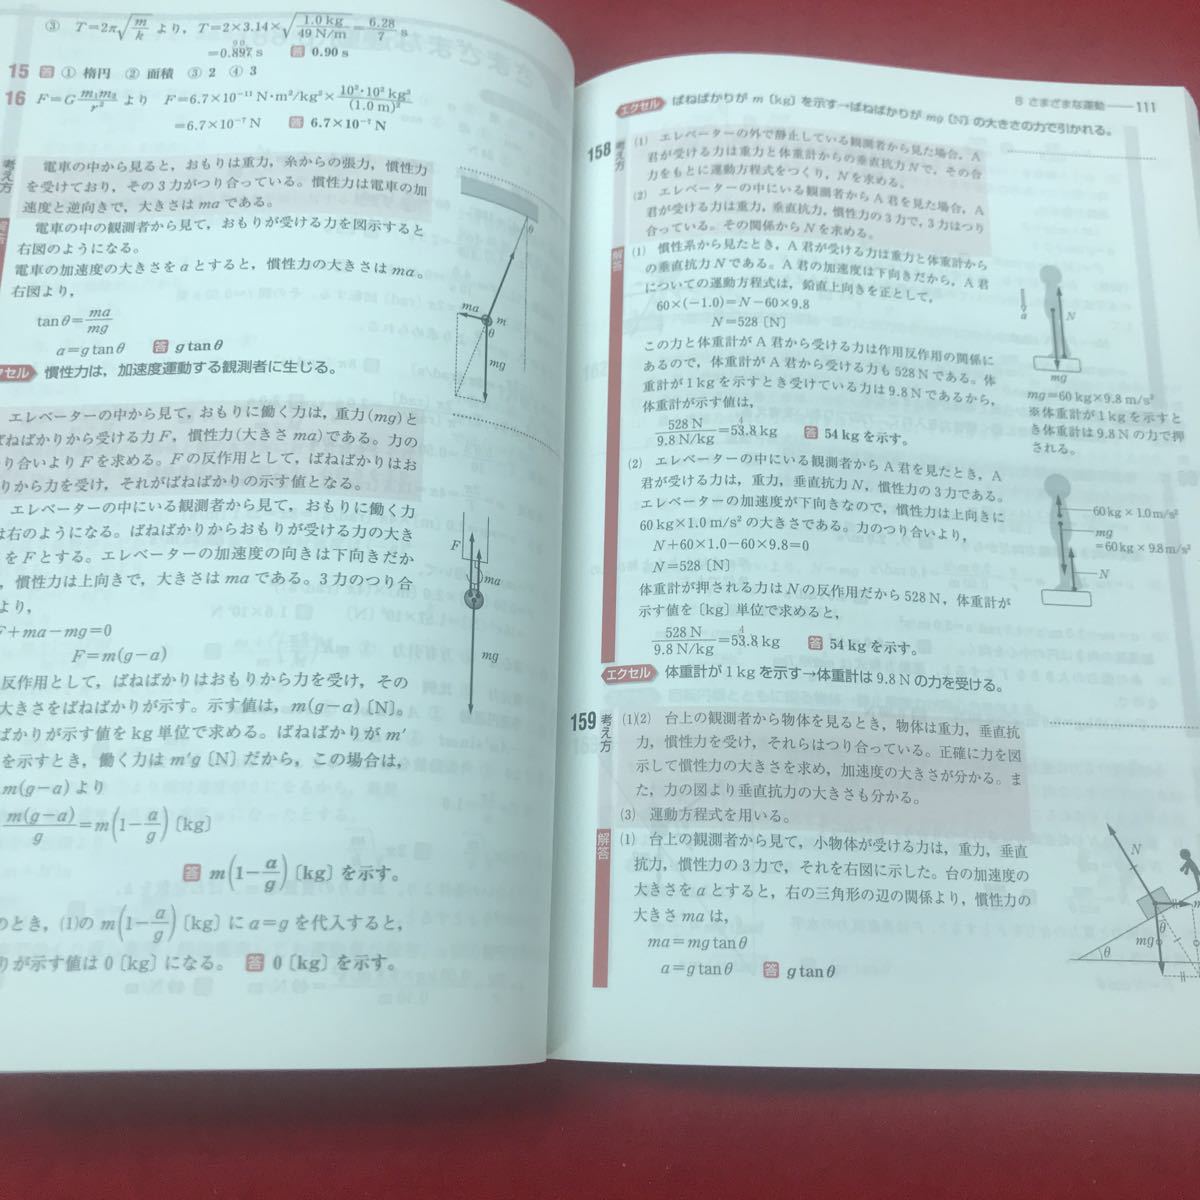 ③ T=2π√(m/k) より，T=2×3.14×√(1.0 kg/49 N/m)=6.28/7 s
=0.897 s 答 0.90 s
15 答 ① 楕円 ② 面積 ③ 2 ④ 3
16 F=G m₁m₂/r² より F=6.7×10⁻¹¹ N·m²/kg²×10²·10² kg²/(1.0 m)²
=6.7×10⁻⁷ N 答 6.7×10⁻⁷ N
考え方
電車の中から見ると，おもりは重力，糸からの張力，慣性力
を受けており，その3力がつり合っている。慣性力は電車の加
速度と逆向きで，大きさは ma である。
電車の中の観測者から見て，おもりが受ける力を図示すると
右図のようになる。
電車の加速度の大きさを a とすると，慣性力の大きさは ma。
右図より，
tanθ=ma/mg
a=g tanθ 答 g tanθ
θ
ma
m
θ
mg
クセル 慣性力は，加速度運動する観測者に生じる。
エレベーターの中から見て，おもりに働く力は，重力(mg)と
ばねばかりから受ける力 F，慣性力(大きさ ma)である。力の
り合いより F を求める。F の反作用として，ばねばかりはお
りから力を受け，それがばねばかりの示す値となる。
エレベーターの中にいる観測者から見て，おもりに働く力
は右のようになる。ばねばかりからおもりが受ける力の大き
を F とする。エレベーターの加速度の向きは下向きだか
，慣性力は上向きで，大きさは ma である。3力のつり合
より，
F+ma−mg=0
F=m(g−a)
反作用として，ばねばかりはおもりから力を受け，その
大きさをばねばかりが示す。示す値は，m(g−a)〔N〕。
ばかりが示す値を kg 単位で求める。ばねばかりが m′
を示すとき，働く力は m′g〔N〕だから，この場合は，
m(g−a) より
m(g−a)/g=m(1−a/g)〔kg〕
答 m(1−a/g)〔kg〕を示す。
のとき，(1)の m(1−a/g)〔kg〕に a=g を代入すると，
りが示す値は 0〔kg〕になる。 答 0〔kg〕を示す。
F
ma
mg
8 さまざまな運動――111
エクセル ばねばかりが m〔kg〕を示す→ばねばかりが mg〔N〕の大きさの力で引かれる。
158 考え方
(1) エレベーターの外で静止している観測者から見た場合，A
君が受ける力は重力と体重計からの垂直抗力 N で，その合
力をもとに運動方程式をつくり，N を求める。
(2) エレベーターの中にいる観測者から A 君を見た場合，A
君が受ける力は重力，垂直抗力，慣性力の3力で，3力はつり
合っている。その関係から N を求める。
解答
(1) 慣性系から見たとき，A 君が受ける力は重力と体重計から
の垂直抗力 N である。A 君の加速度は下向きだから，A 君
についての運動方程式は，鉛直上向きを正として，
60×(−1.0)=N−60×9.8
N=528〔N〕
この力と体重計が A 君から受ける力は作用反作用の関係に
あるので，体重計が A 君から受ける力も 528 N である。体
重計が 1 kg を示すとき受けている力は 9.8 N であるから，
体重計が示す値は，
528 N/9.8 N/kg=53.8 kg 答 54 kg を示す。
(2) エレベーターの中にいる観測者から A 君を見たとき，A
君が受ける力は，重力，垂直抗力 N，慣性力の3力である。
エレベーターの加速度が下向きなので，慣性力は上向きに
60 kg×1.0 m/s² の大きさである。力のつり合いより，
N+60×1.0−60×9.8=0
N=528〔N〕
体重計が押される力は N の反作用だから 528 N，体重計が
示す値を〔kg〕単位で求めると，
528 N/9.8 N/kg=53.8 kg 答 54 kg を示す。
a
N
mg
mg=60 kg×9.8 m/s²
※体重計が 1 kg を示すと
き体重計は 9.8 N の力で押
される。
60 kg×1.0 m/s²
mg
=60 kg×9.8 m/s²
N
エクセル 体重計が 1 kg を示す→体重計は 9.8 N の力を受ける。
159 考え方
(1)(2) 台上の観測者から物体を見るとき，物体は重力，垂直抗
力，慣性力を受け，それらはつり合っている。正確に力を図
示して慣性力の大きさを求め，加速度の大きさが分かる。ま
た，力の図より垂直抗力の大きさも分かる。
(3) 運動方程式を用いる。
解答
(1) 台上の観測者から見て，小物体が受ける力は，重力，垂直
抗力，慣性力の3力で，それを右図に示した。台の加速度の
大きさを a とすると，右の三角形の辺の関係より，慣性力の
大きさ ma は，
ma=mg tanθ
a=g tanθ 答 g tanθ
N
mg
θ
θ